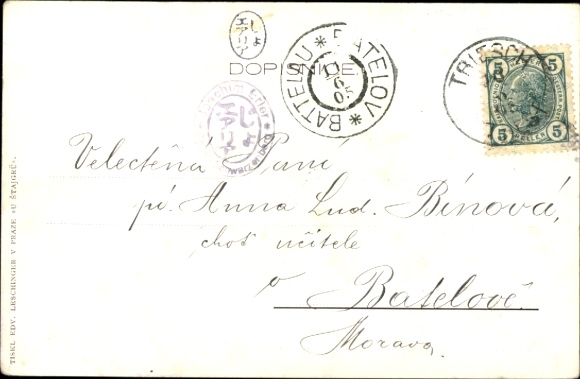 DOPISNICE.
BATTELAU * BATELOV *
TRIESCH
5 5
5 5
Velectěná Paní
pí. Anna Lud. Bínová,
choť učitele
v
Batelově.
Morava.
TISKL EDV. LESCHINGER V PRAZE «U ŠTAJGRŮ».